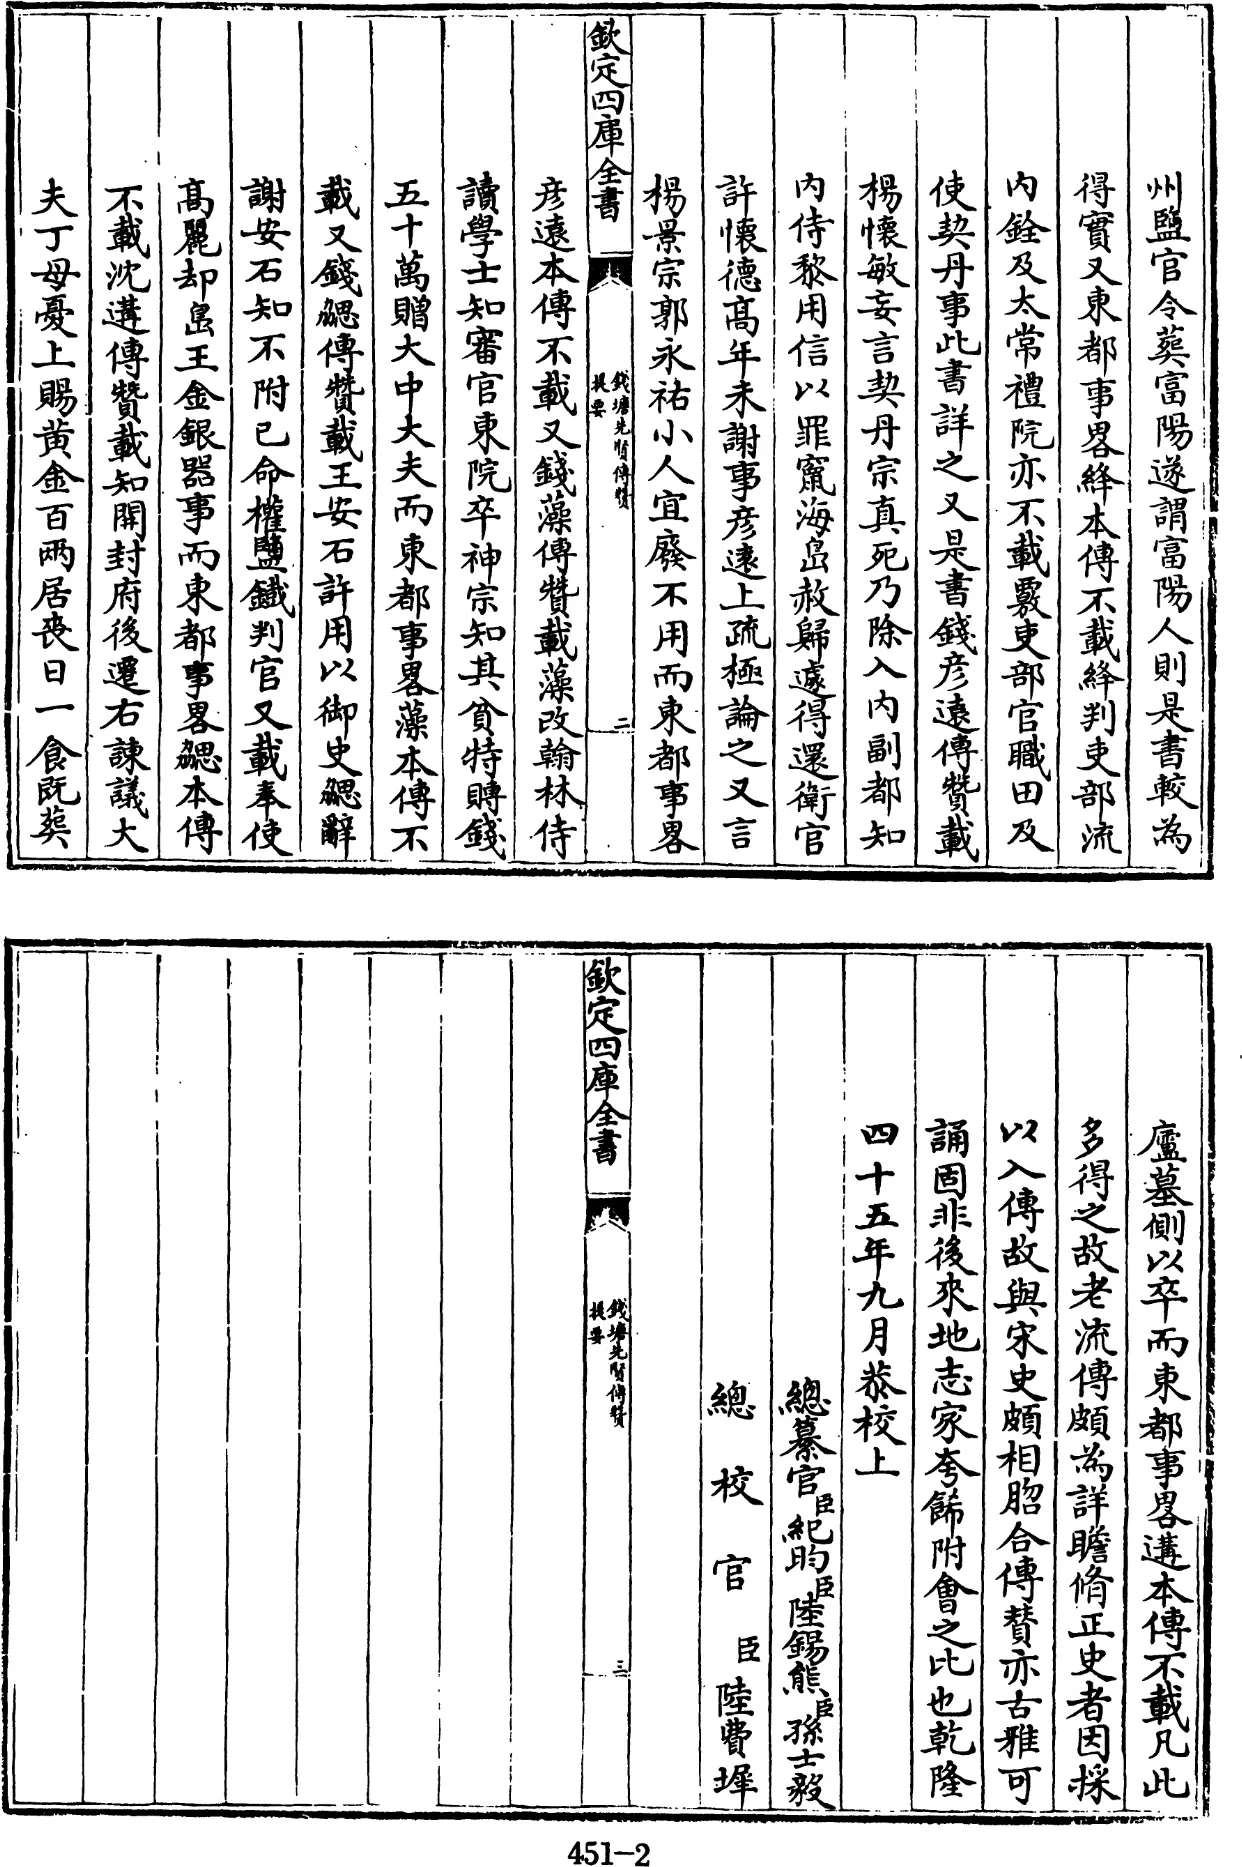 州鹽官令葬富陽遂謂富陽人則是書較為
得實又東都事畧絳本傳不載絳判吏部流
内銓及太常禮院亦不載覈吏部官職田及
使契丹事此書詳之又是書錢彦遠傳贊載
楊懷敏妄言契丹宗真死乃除入内副都知
内侍黎用信以罪竄海島赦歸遽得還衛官
許懷德髙年未謝事彦遠上疏極論之又言
楊景宗郭永祐小人宜廢不用而東都事畧
欽定四庫全書
錢塘先賢傳贊
提要
二
彦遠本傳不載又錢藻傳贊載藻改翰林侍
讀學士知審官東院卒神宗知其貧特賻錢
五十萬贈大中大夫而東都事畧藻本傳不
載又錢勰傳贊載王安石許用以御史勰辭
謝安石知不附已命權鹽鐵判官又載奉使
髙麗却島王金銀器事而東都事畧勰本傳
不載沈遘傳贊載知開封府後遷右諫議大
夫丁母憂上賜黄金百兩居丧日一食既葬
廬墓側以卒而東都事畧遘本傳不載凡此
多得之故老流傳頗為詳贍脩正史者因採
以入傳故與宋史頗相脗合傳贊亦古雅可
誦固非後來地志家夸飾附會之比也乾隆
四十五年九月恭校上
總纂官臣紀昀臣陸錫熊臣孫士毅
總校官臣陸費墀
欽定四庫全書
錢塘先賢傳贊
提要
三
451-2